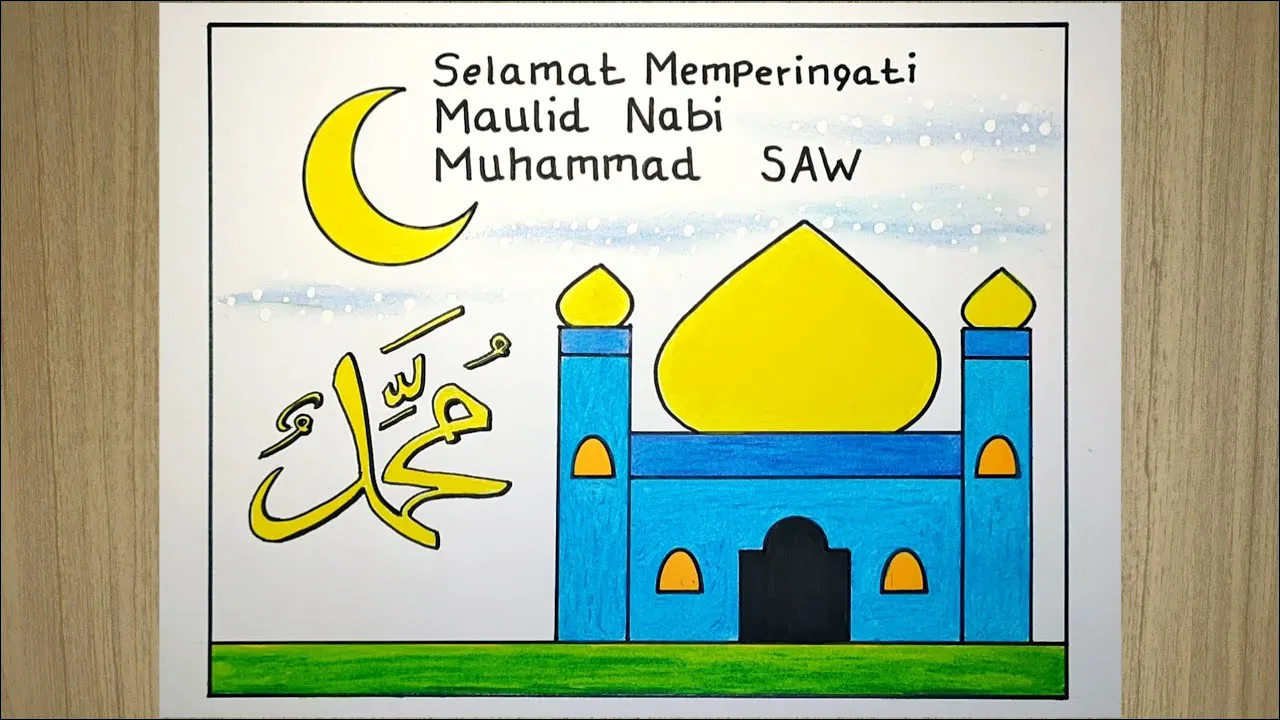 Selamat Memperingati
Maulid Nabi
Muhammad SAW
مُحَمَّدٌ